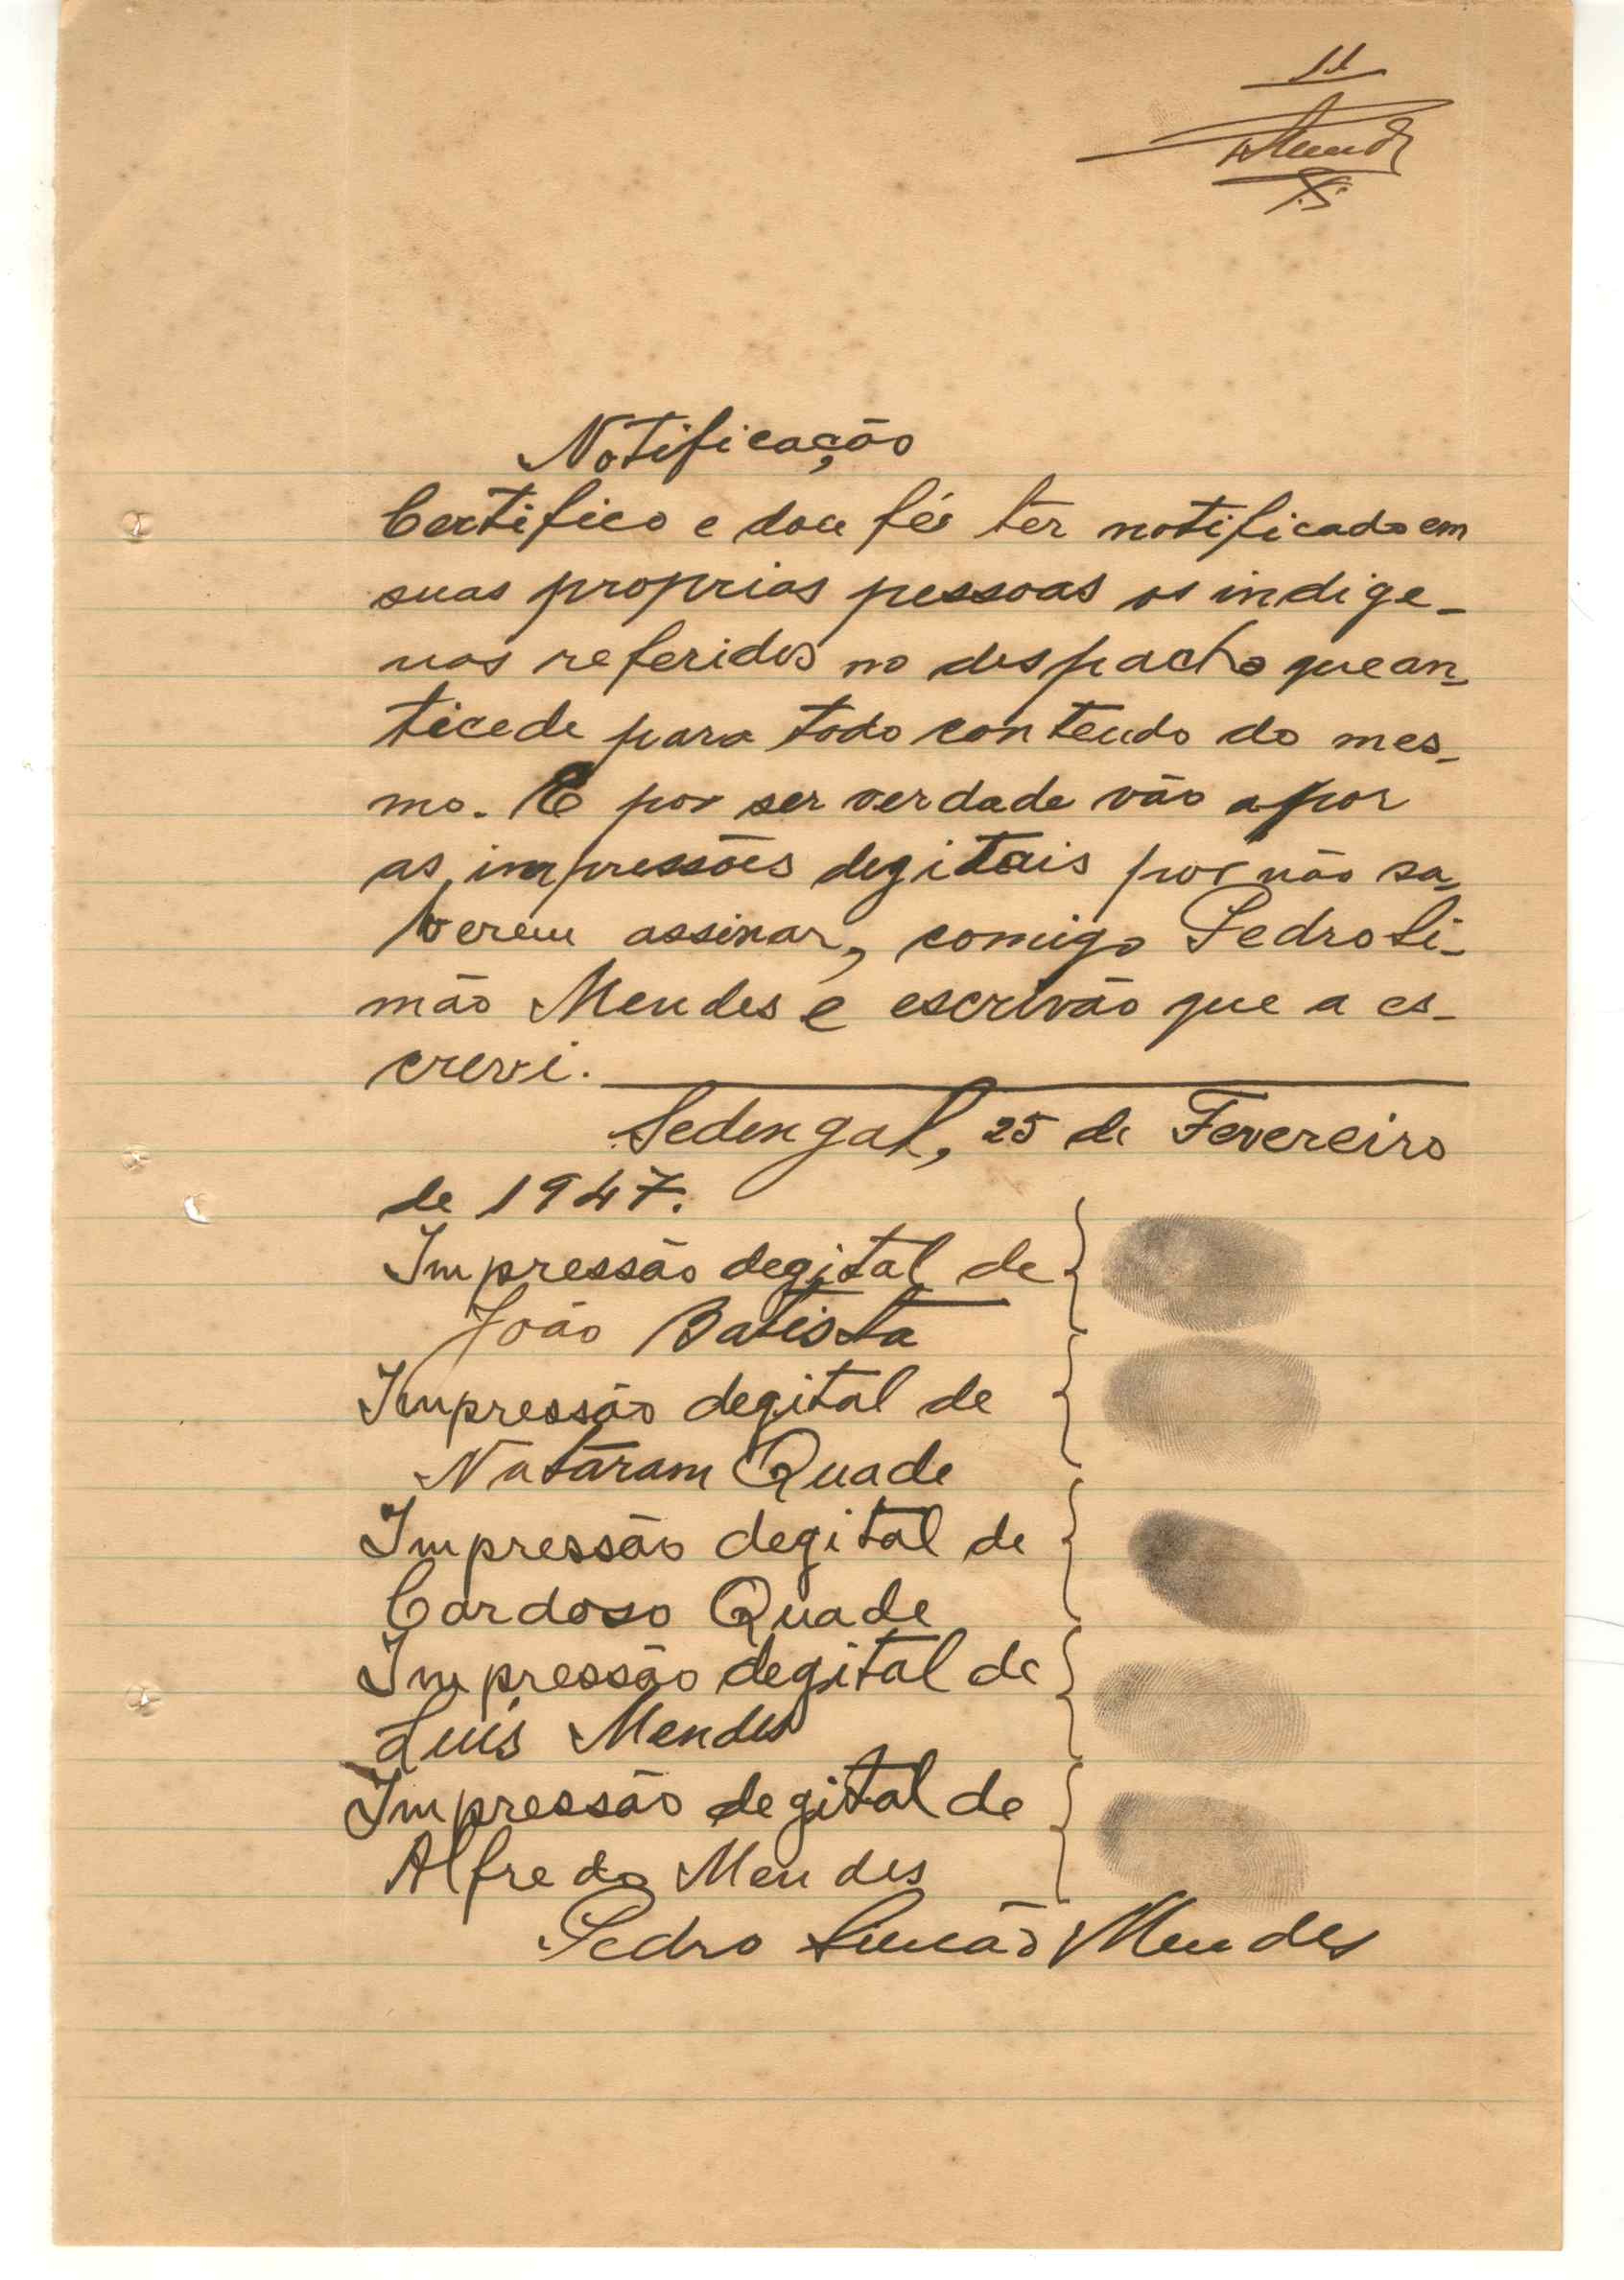 11
Notificação
Certifico e dou fé ter notificado em
suas proprias pessoas os indige-
nas referidos no despacho que an-
ticede para todo conteudo do mes-
mo. E por ser verdade vão apor
as impressões degitais por não sa-
berem assinar, comigo Pedro Si-
mão Mendes e escrivão que a es-
crevi.
Sedengal, 25 de Fevereiro
de 1947.
Impressão degital de
João Batista
Impressão degital de
Nataram Quade
Impressão degital de
Cardoso Quade
Impressão degital de
Luís Mendes
Impressão degital de
Alfredo Mendes
Pedro Simão Mendes